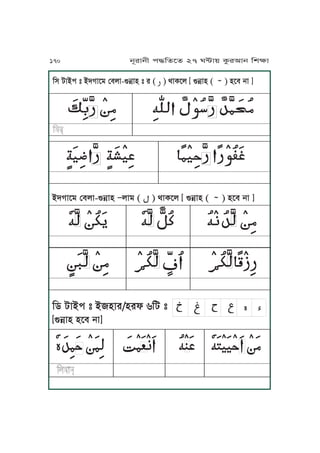 ১৭০ নুরানী পদ্ধতিতে ২৭ ঘন্টায় কুরআন শিক্ষা
সি টাইপ ঃ ইদগামে বেলা-গুন্নাহ ঃ র ( ر ) থাকলে [ গুন্নাহ ( ~ ) হবে না ]
مُحَمَّدٌ رَّسُوْلُ اللّٰهِ مِنْ رَّبِّكَ
غَفُوْرًا رَّحِيْمًا عِيْشَةٍ رَّاضِيَةٍ
ইদগামে বেলা-গুন্নাহ –লাম ( ل ) থাকলে [ গুন্নাহ ( ~ ) হবে না ]
مِنْ لَّدُنْهُ كُلٌّ لَّهٗ يَكُنْ لَّهٗ
رِزْقًا لَّكُمْ اُفٍّ لَّكُمْ مِنْ لَّبَنٍ
ডি টাইপ ঃ ইজহার/হরফ ৬টি ঃ ء ه ع ح غ خ
[গুন্নাহ হবে না]
مَنْ اَحْيَيْتَهٗ عَنْهُ اَنْعَمْتَ لِمَنْ حَمِدَهٗ